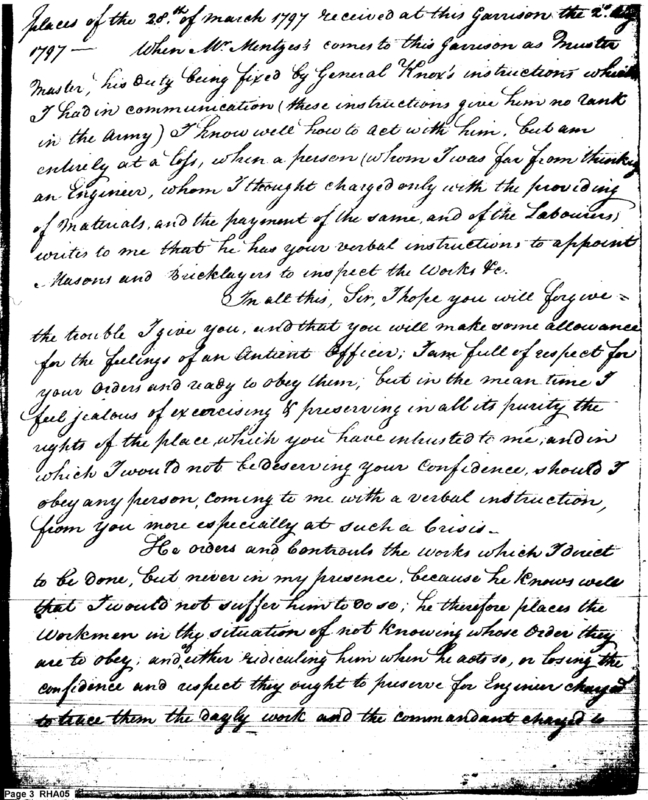 places of the 28th. of march 1797 received at this Garrison the 2d. Aug
1797 — When Mr. Mentges's comes to this Garrison as Muster
Master, his Duty being fixed by General Knox's instructions which
I had in communication (these instructions give him no rank
in the Army) I know well how to act with him, but am
entirely at a loss, when a person (whom I was far from thinking
an Engineer, whom I thought charged only with the providing
of Materials, and the payment of the same, and of the Labourers)
writes to me that he has your verbal instructions to appoint
Masons and Bricklayers to inspect the Works &c.
In all this, Sir, I hope you will forgive =
the trouble I give you, and that you will make some allowance
for the feelings of an Antient Officer; I am full of respect for
your orders and ready to obey them; but in the mean time I
feel jealous of exercising & preserving in all its purity the
rights of the place which you have intrusted to me; and in
which I would not be deserving your Confidence, should I
obey any person, coming to me with a verbal instruction,
from you more especially at such a Crisis —
He orders and Controuls the works which I direct
to be done, but never in my presence, because he knows well
that I would not suffer him to do so; he therefore places the
Workmen in the situation of not knowing whose order they
are to obey; and of either ridiculing him when he acts so, or losing the
confidence and respect they ought to preserve for Engineer charged
to trace them the dayly work and the commandant charged to
Page 3 RHA05